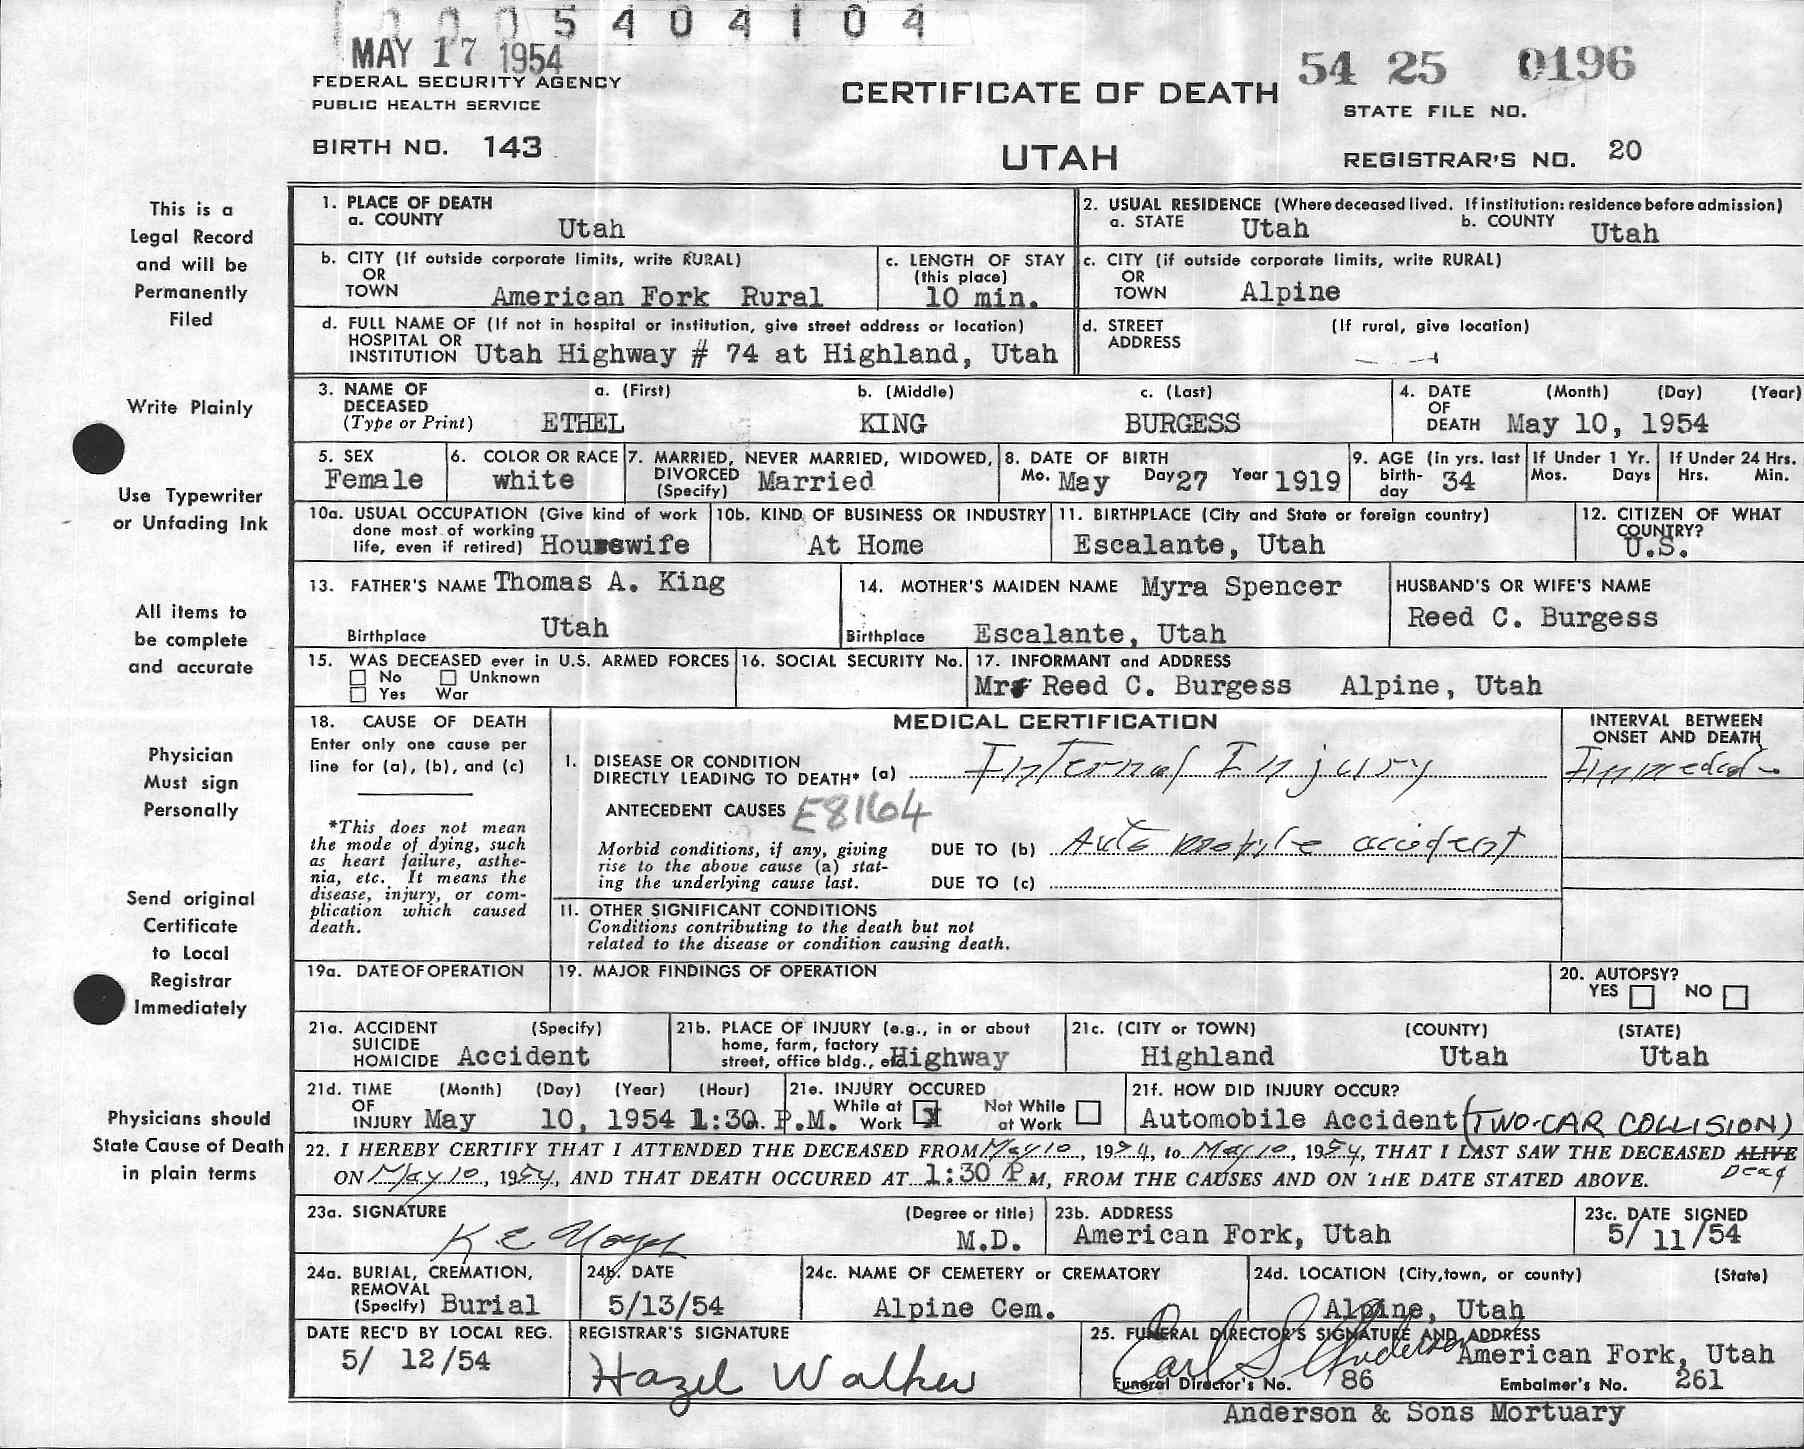 0005404104
MAY 17 1954
FEDERAL SECURITY AGENCY
PUBLIC HEALTH SERVICE
BIRTH NO. 143
CERTIFICATE OF DEATH
UTAH
54 25 0196
STATE FILE NO.
REGISTRAR'S NO. 20
This is a
Legal Record
and will be
Permanently
Filed
Write Plainly
Use Typewriter
or Unfading Ink
All items to
be complete
and accurate
Physician
Must sign
Personally
Send original
Certificate
to Local
Registrar
Immediately
Physicians should
State Cause of Death
in plain terms
1. PLACE OF DEATH
a. COUNTY Utah
2. USUAL RESIDENCE (Where deceased lived. If institution: residence before admission)
a. STATE Utah b. COUNTY Utah
b. CITY (If outside corporate limits, write RURAL)
OR
TOWN American Fork Rural
c. LENGTH OF STAY
(this place)
10 min.
c. CITY (if outside corporate limits, write RURAL)
OR
TOWN Alpine
d. FULL NAME OF (If not in hospital or institution, give street address or location)
HOSPITAL OR
INSTITUTION Utah Highway # 74 at Highland, Utah
d. STREET (If rural, give location)
ADDRESS
3. NAME OF a. (First) b. (Middle) c. (Last)
DECEASED
(Type or Print) ETHEL KING BURGESS
4. DATE (Month) (Day) (Year)
OF
DEATH May 10, 1954
5. SEX
Female
6. COLOR OR RACE
white
7. MARRIED, NEVER MARRIED, WIDOWED,
DIVORCED
(Specify) Married
8. DATE OF BIRTH
Mo. May Day 27 Year 1919
9. AGE (in yrs. last
birth-
day 34
If Under 1 Yr.
Mos. Days
If Under 24 Hrs.
Hrs. Min.
10a. USUAL OCCUPATION (Give kind of work
done most of working
life, even if retired) Housewife
10b. KIND OF BUSINESS OR INDUSTRY
At Home
11. BIRTHPLACE (City and State or foreign country)
Escalante, Utah
12. CITIZEN OF WHAT
COUNTRY?
U.S.
13. FATHER'S NAME Thomas A. King
Birthplace Utah
14. MOTHER'S MAIDEN NAME Myra Spencer
Birthplace Escalante, Utah
HUSBAND'S OR WIFE'S NAME
Reed C. Burgess
15. WAS DECEASED ever in U.S. ARMED FORCES
No Unknown
Yes War
16. SOCIAL SECURITY No.
17. INFORMANT and ADDRESS
Mr Reed C. Burgess Alpine, Utah
18. CAUSE OF DEATH
Enter only one cause per
line for (a), (b), and (c)
*This does not mean
the mode of dying, such
as heart failure, asthe-
nia, etc. It means the
disease, injury, or com-
plication which caused
death.
MEDICAL CERTIFICATION
INTERVAL BETWEEN
ONSET AND DEATH
I. DISEASE OR CONDITION
DIRECTLY LEADING TO DEATH* (a) Internal Injury
ANTECEDENT CAUSES E8164
Morbid conditions, if any, giving
rise to the above cause (a) stat-
ing the underlying cause last.
DUE TO (b) Auto mobile accident
DUE TO (c)
II. OTHER SIGNIFICANT CONDITIONS
Conditions contributing to the death but not
related to the disease or condition causing death.
19a. DATE OF OPERATION
19. MAJOR FINDINGS OF OPERATION
20. AUTOPSY?
YES NO
21a. ACCIDENT (Specify)
SUICIDE
HOMICIDE Accident
21b. PLACE OF INJURY (e.g., in or about
home, farm, factory
street, office bldg., etc. Highway
21c. (CITY or TOWN) (COUNTY) (STATE)
Highland Utah Utah
21d. TIME (Month) (Day) (Year) (Hour)
OF
INJURY May 10, 1954 1:30 P.M.
21e. INJURY OCCURED
While at Work X Not While at Work
21f. HOW DID INJURY OCCUR?
Automobile Accident (TWO-CAR COLLISION)
22. I HEREBY CERTIFY THAT I ATTENDED THE DECEASED FROM May 10, 1954, to May 10, 1954, THAT I LAST SAW THE DECEASED ALIVE Dead
ON May 10, 1954, AND THAT DEATH OCCURED AT 1:30 P M, FROM THE CAUSES AND ON THE DATE STATED ABOVE.
23a. SIGNATURE (Degree or title)
K E M.D.
23b. ADDRESS
American Fork, Utah
23c. DATE SIGNED
5/ 11/54
24a. BURIAL, CREMATION,
REMOVAL
(Specify) Burial
24b. DATE
5/13/54
24c. NAME OF CEMETERY or CREMATORY
Alpine Cem.
24d. LOCATION (City, town, or county) (State)
Alpine, Utah
DATE REC'D BY LOCAL REG.
5/ 12/54
REGISTRAR'S SIGNATURE
Hazel Walker
25. FUNERAL DIRECTOR'S SIGNATURE AND ADDRESS
Carl S Anderson American Fork, Utah
Funeral Director's No. 86 Embalmer's No. 261
Anderson & Sons Mortuary